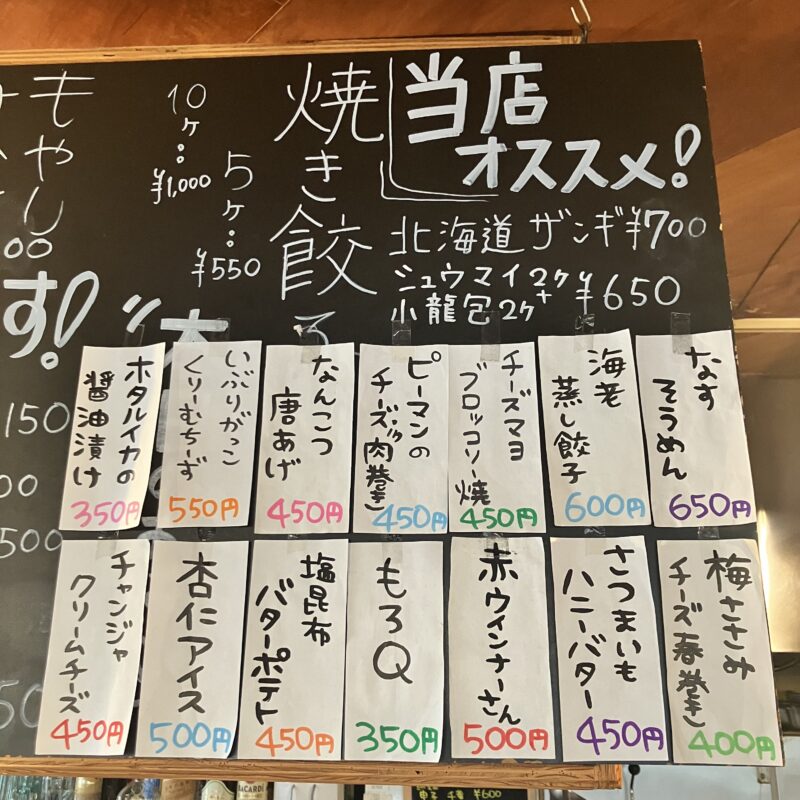 当店
オススメ!
北海道ザンギ¥700
シュウマイ2ケ
小龍包2ケ+
¥650
焼き餃子
5ケ:
¥550
10ケ:
¥1,000
もやし
す!
150
00
500
50
なす
そうめん
650円
海老
蒸し餃子
600円
チーズマヨ
ブロッコリー焼
450円
ピーマンの
チーズ肉巻き
450円
なんこつ
唐あげ
450円
いぶりがっこ
くりーむちーず
550円
ホタルイカの
醤油漬け
350円
梅ささみ
チーズ春巻き
400円
さつまいも
ハニーバター
450円
赤ウィンナーさん
500円
もろQ
350円
塩昆布
バターポテト
450円
杏仁アイス
500円
チャンジャ
クリームチーズ
450円
BACARDI
¥600